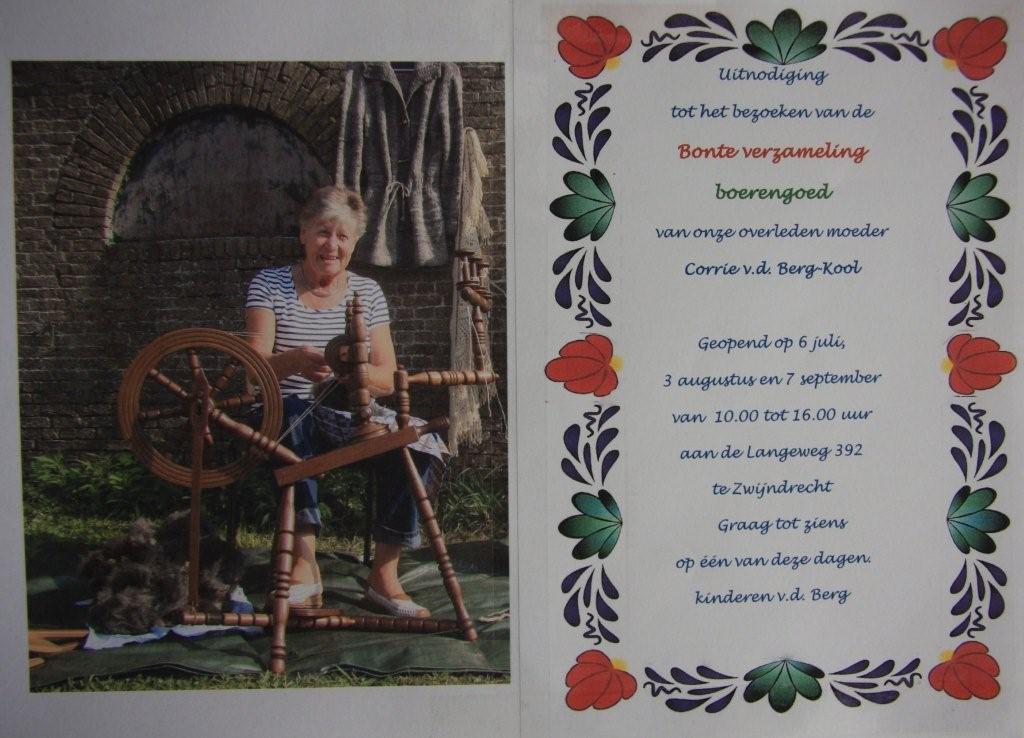 Uitnodiging
tot het bezoeken van de
Bonte verzameling
boerengoed
van onze overleden moeder
Corrie v.d. Berg-Kool
Geopend op 6 juli,
3 augustus en 7 september
van 10.00 tot 16.00 uur
aan de Langeweg 392
te Zwijndrecht
Graag tot ziens
op één van deze dagen.
kinderen v.d. Berg